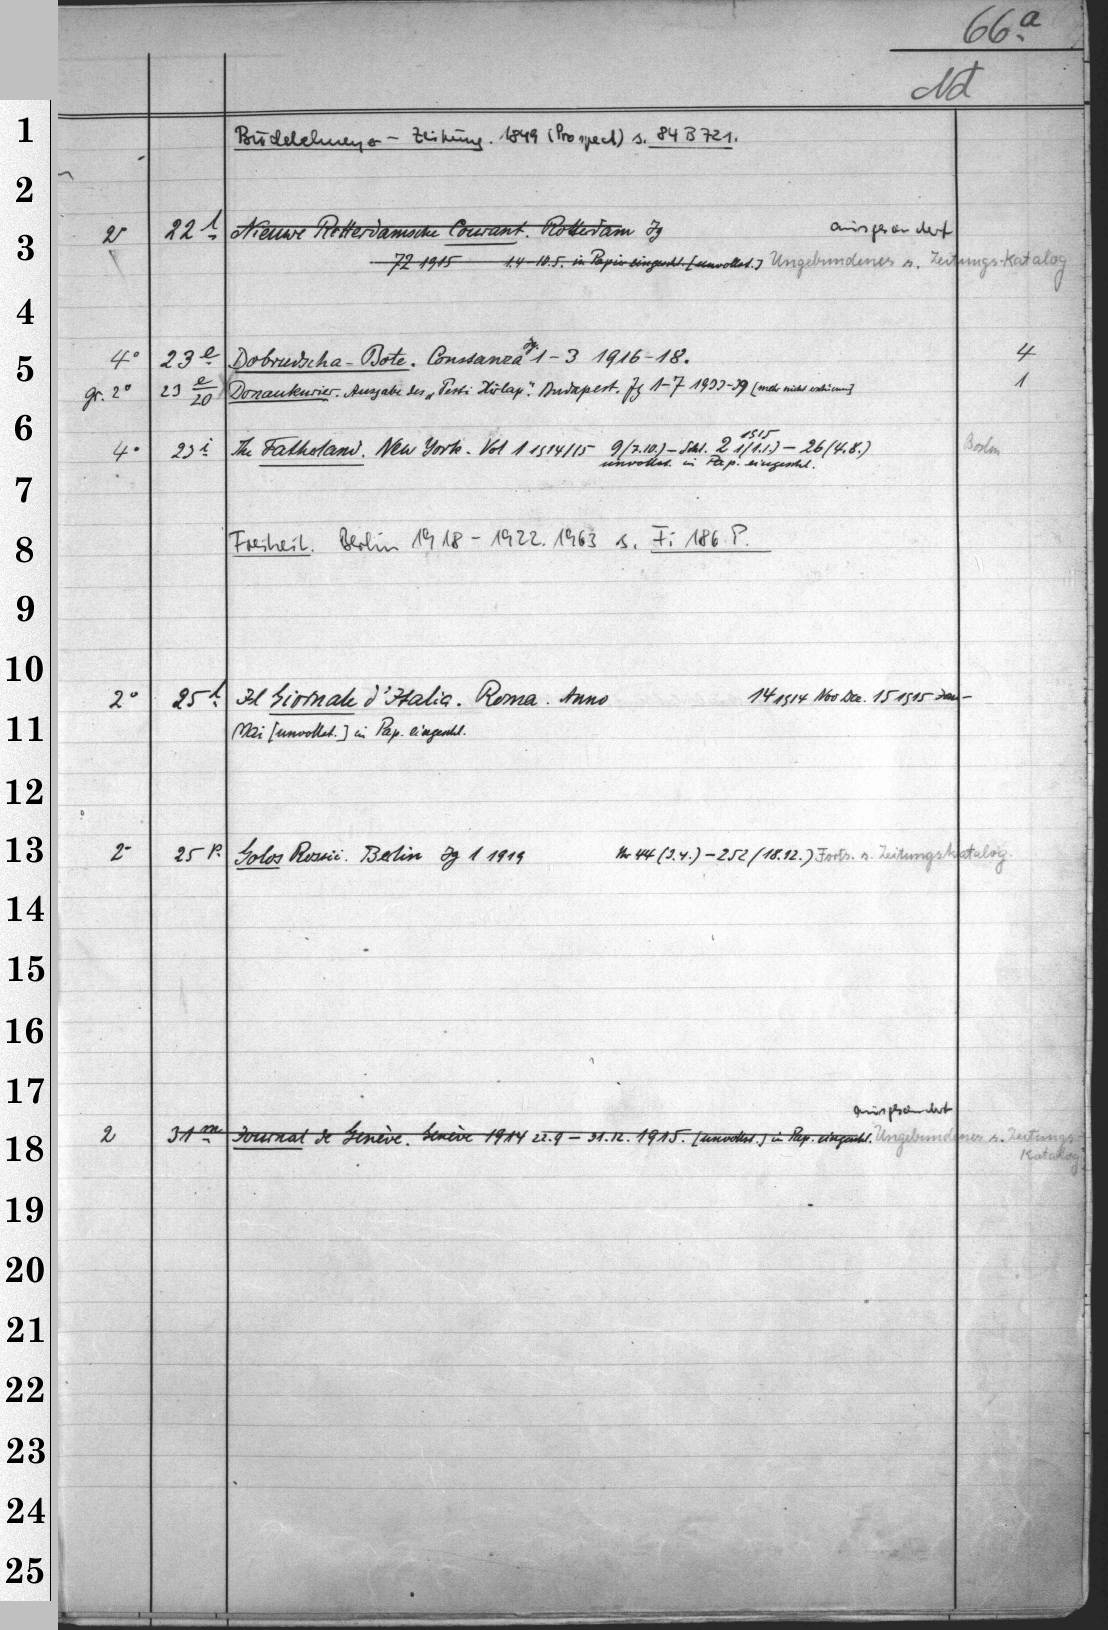 66.a
Nd
1
Buddelmeyer - Zeitung. 1849 (Prospect) s. 84 B 721.
2
2° 22 l Nieuwe Rotterdamsche Courant. Rotterdam Jg ausgesondert
3
72 1915 1.4-10.5. in Papier eingeschl. [unvollst.] Ungebundenes s. Zeitungs-Katalog
4
4° 23 e Dobrudscha-Bote. Constanza Jg. 1-3 1916-18. 4
5
gr. 2° 23 e/20 Donaukurier. Ausgabe des „Pesti Hirlap". Budapest. Jg 1-7 1933-39 [mehr nicht erschienen] 1
6
4° 23 i The Fatherland. New York. Vol 1 1914/15 9(7.10.)-Schl. 2 1915 1(1.1.)-26(4.8.)
unvollst. in Pap. eingeschl.
7
8
Freiheit. Berlin 1918-1922. 1963 s. Fi 186 P.
9
10
2° 25 h Il Giornale d'Italia. Roma. Anno 14 1914 Nov Dec. 15 1915 Jan-
11
Mai [unvollst.] in Pap. eingeschl.
12
13
2° 25 p. Golos Rossii. Berlin Jg 1 1919 Nr 44 (3.4.)-252 (18.12.) Forts. s. Zeitungskatalog.
14
15
16
17
ausgesondert
2 31 m Journal de Genève. Genève 1914 22.9-31.12. 1915. [unvollst.] in Pap. eingeschl. Ungebundenes s. Zeitungs-
18
Katalog
19
20
21
22
23
24
25